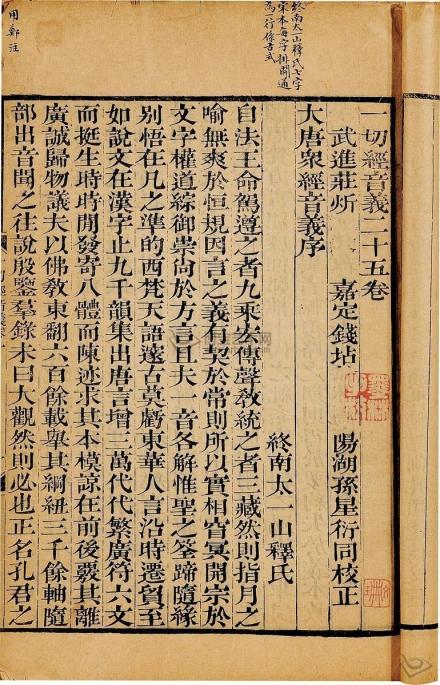 終南太一山釋氏七字
宋本每字拼開通
為一行係古式
用鄭注
一切經音義二十五卷
武進莊炘　嘉定錢坫　陽湖孫星衍同校正
大唐眾經音義序
終南太一山釋氏
自法王命駕遵之者九乘玄傳聲教統之者三藏然則指月之
喻無爽於恒規因言之義有契於常則所以實相窅冥開宗於
文字權道綜御崇尚於方言且夫一音各解惟聖之筌蹄隨緣
別悟在凡之準的西梵天語邃古莫虧東華人言沿時遷貿至
如說文在漢字止九千韻集出唐言增三萬代代繁廣符六文
而挺生時時開發寄八體而陳迹求其本模諒在前後覈其離
廣誠歸物議夫以佛教東翻六百餘載舉其綱紐三千餘軸隨
部出音聞之往說殷鑒羣錄未曰大觀然則必也正名孔君之